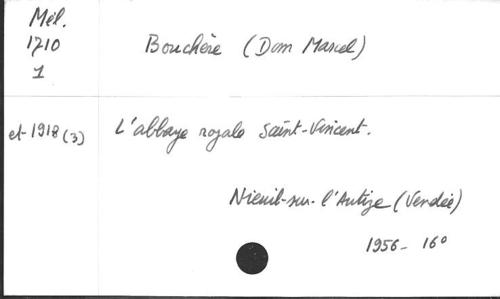 Mél.
1710
1
Bouchère (Dom Marcel)
et 1918 (3)
L'abbaye royale Saint-Vincent.
Nieuil-sur-l'Autize (Vendée)
1956 - 16°